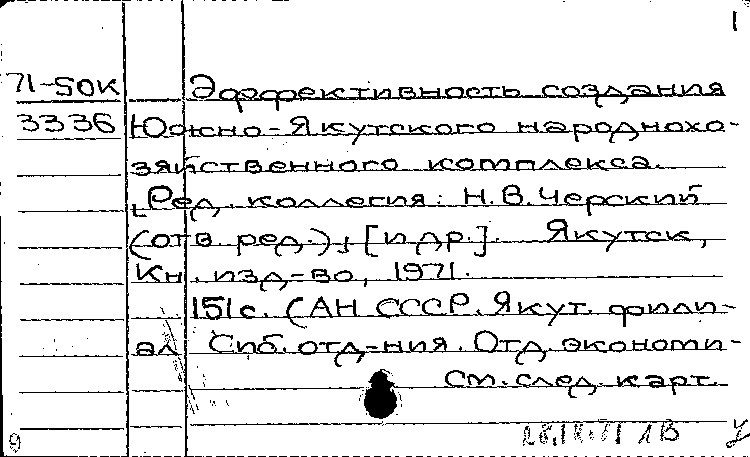 1
71-50К Эффективность создания
3336 Южно-Якутского народнохо-
зяйственного комплекса.
[Ред. коллегия: Н.В.Черский
(отв. ред.), [и др.]. Якутск,
Кн. изд-во, 1971.
151с. (АН СССР. Якут. фили-
ал Сиб. отд-ния. Отд. экономи-
См. след. карт.
9